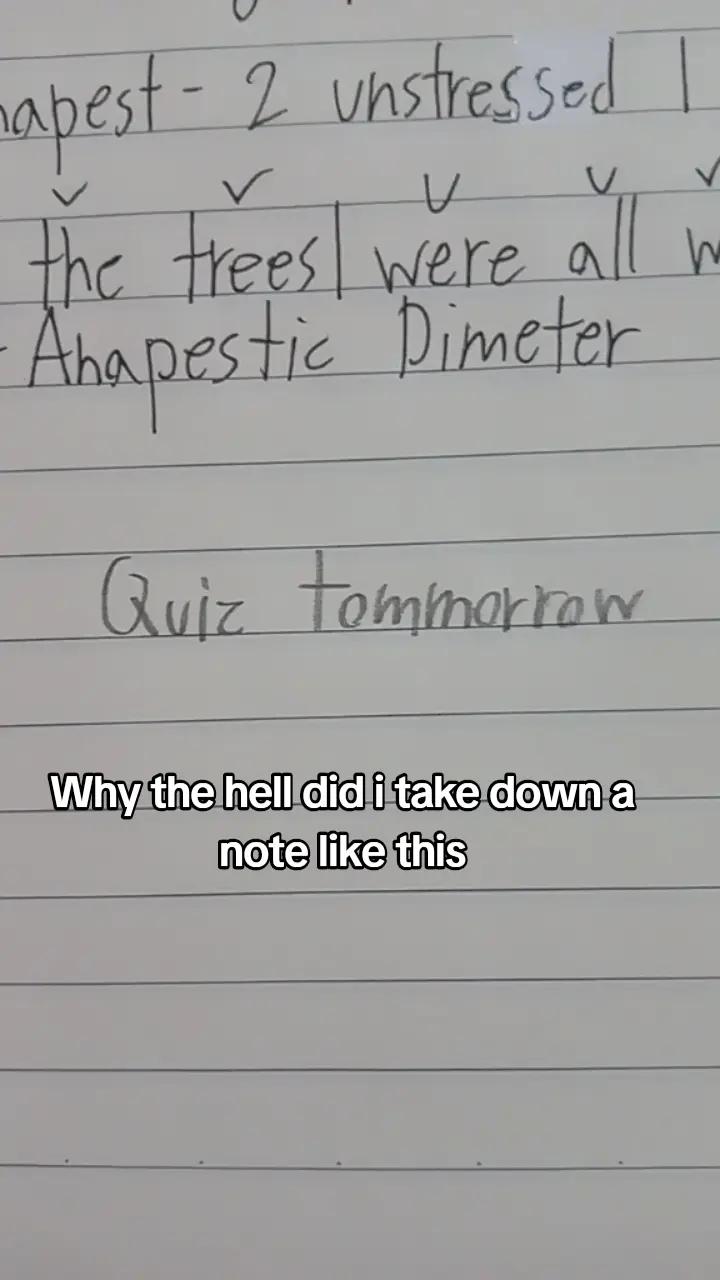 napest - 2 unstressed 1
the trees| were all w
- Anapestic Dimeter
Quiz tommorrow
Why the hell did i take down a
note like this